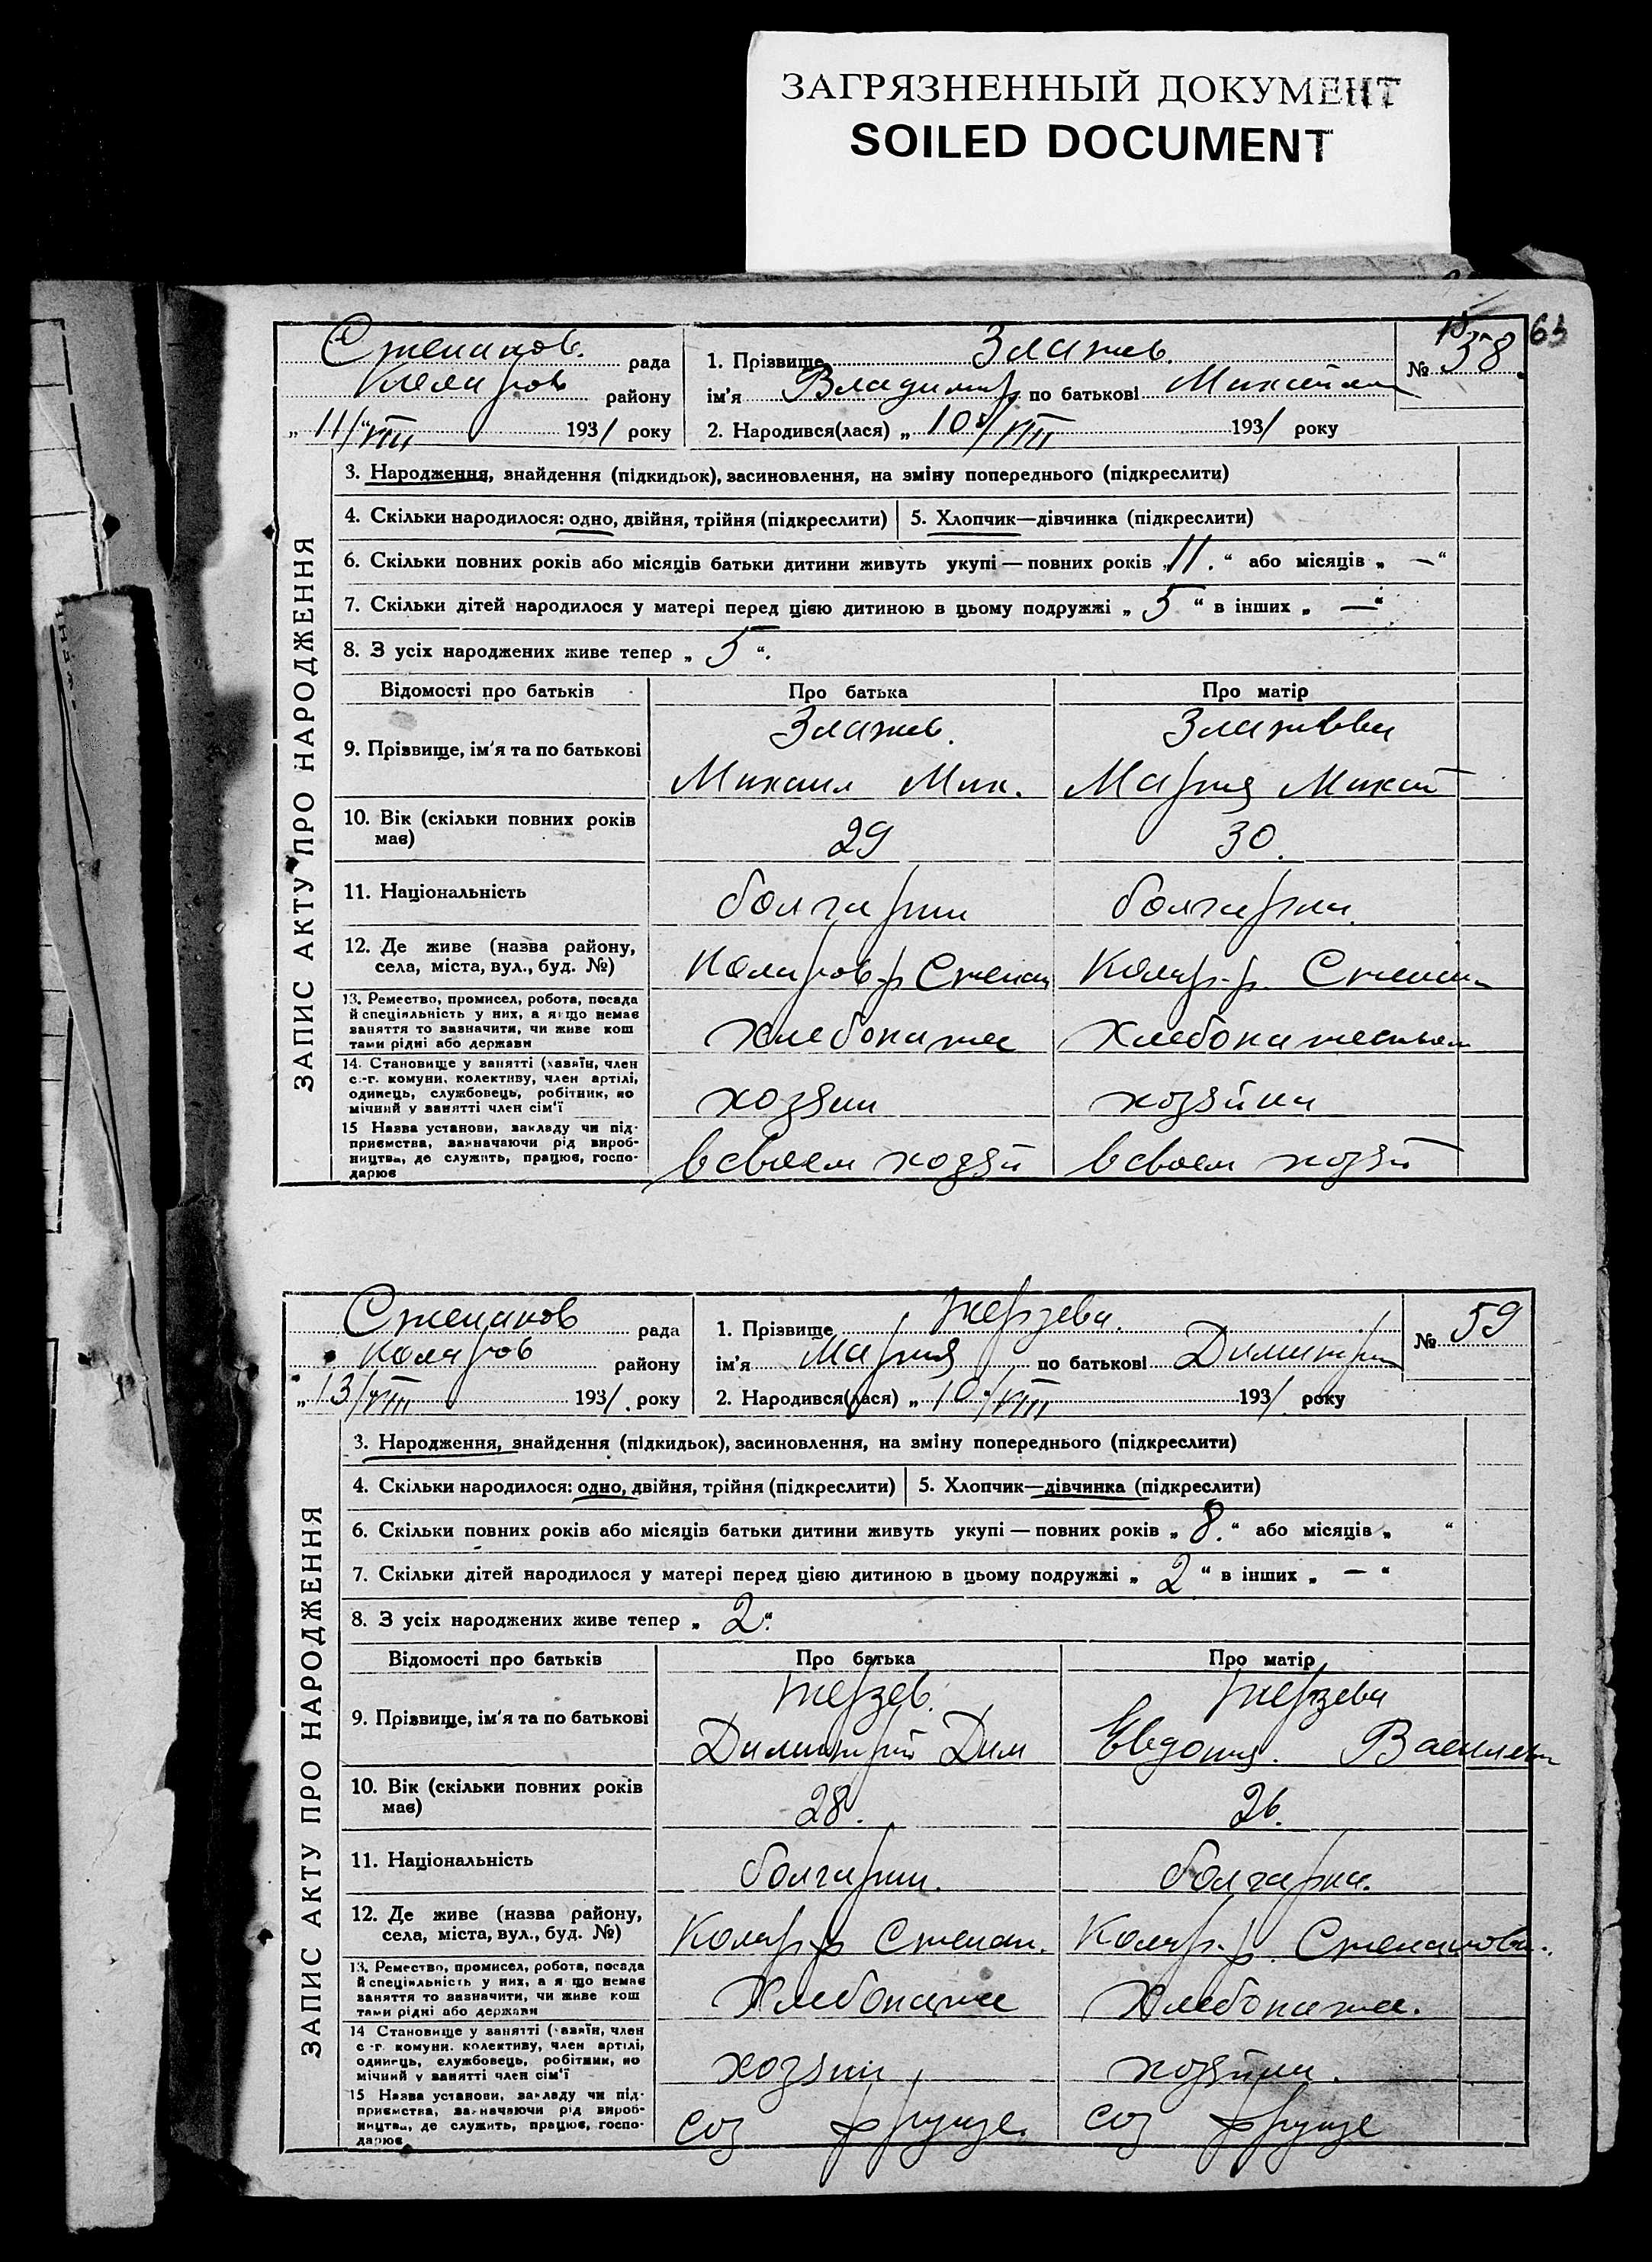 ЗАГРЯЗНЕННЫЙ ДОКУМЕНТ
SOILED DOCUMENT
63
ЗАПИС АКТУ ПРО НАРОДЖЕННЯ
Степанов. рада
Коларов району
„ 11/VIII 1931 року
1. Прізвище Златев.
ім'я Владимир по батькові Михайл
2. Народився(лася) „ 10"/VIII 1931 року
№ 58.
3. Народження, знайдення (підкидьок), засиновлення, на зміну попереднього (підкреслити)
4. Скільки народилося: одно, двійня, трійня (підкреслити) 5. Хлопчик—дівчинка (підкреслити)
6. Скільки повних років або місяців батьки дитини живуть укупі — повних років „11.“ або місяців „ — “
7. Скільки дітей народилося у матері перед цією дитиною в цьому подружжі „ 5 “ в інших „ — “
8. З усіх народжених живе тепер „ 5 “.
Відомості про батьків Про батька Про матір
9. Прізвище, ім'я та по батькові
Златев. Златева
Михаил Мих. Мария Михай
10. Вік (скільки повних років має) 29 30.
11. Національність болгарин болгарка.
12. Де живе (назва району, села, міста, вул., буд. №) Коларов р Степан Колар. р. Степан
13. Ремество, промисел, робота, посада й спеціяльність у них, а якщо немає заняття то зазначити, чи живе коштами рідні або держави Хлебопаше Хлебопашеством
14. Становище у занятті (хазяїн, член с.-г. комуни, колективу, член артілі, одинець, службовець, робітник, помічний у занятті член сім'ї хозяин хозяйка
15 Назва установи, закладу чи підприємства, зазначаючи рід виробництва, де служить, працює, господарює в своем хозяй в своем хозяй
ЗАПИС АКТУ ПРО НАРОДЖЕННЯ
Степанов рада
Коларов району
„ 13/VIII 1931. року
1. Прізвище Терзева.
ім'я Мария по батькові Димитри
2. Народився(лася) „ 10"/VIII 1931 року
№ 59
3. Народження, знайдення (підкидьок), засиновлення, на зміну попереднього (підкреслити)
4. Скільки народилося: одно, двійня, трійня (підкреслити) 5. Хлопчик—дівчинка (підкреслити)
6. Скільки повних років або місяців батьки дитини живуть укупі — повних років „ 8. “ або місяців „ “
7. Скільки дітей народилося у матері перед цією дитиною в цьому подружжі „ 2 “ в інших „ — “
8. З усіх народжених живе тепер „ 2 “.
Відомості про батьків Про батька Про матір
9. Прізвище, ім'я та по батькові
Терзев. Терзева
Димитрий Дим Евдокия. Васильев
10. Вік (скільки повних років має) 28. 26.
11. Національність болгарин. болгарка.
12. Де живе (назва району, села, міста, вул., буд. №) Колар р Степан. Колар. р. Степановк.
13. Ремество, промисел, робота, посада й спеціяльність у них, а якщо немає заняття то зазначити, чи живе коштами рідні або держави Хлебопаше Хлебопаше.
14 Становище у занятті (хазяїн, член с-г. комуни, колективу, член артілі, одинець, службовець, робітник, помічний у занятті член сім'ї хозяин хозяйка.
15 Назва установи, закладу чи підприємства, зазначаючи рід виробництва, де служить, працює, господарює соз фрунзе. соз фрунзе